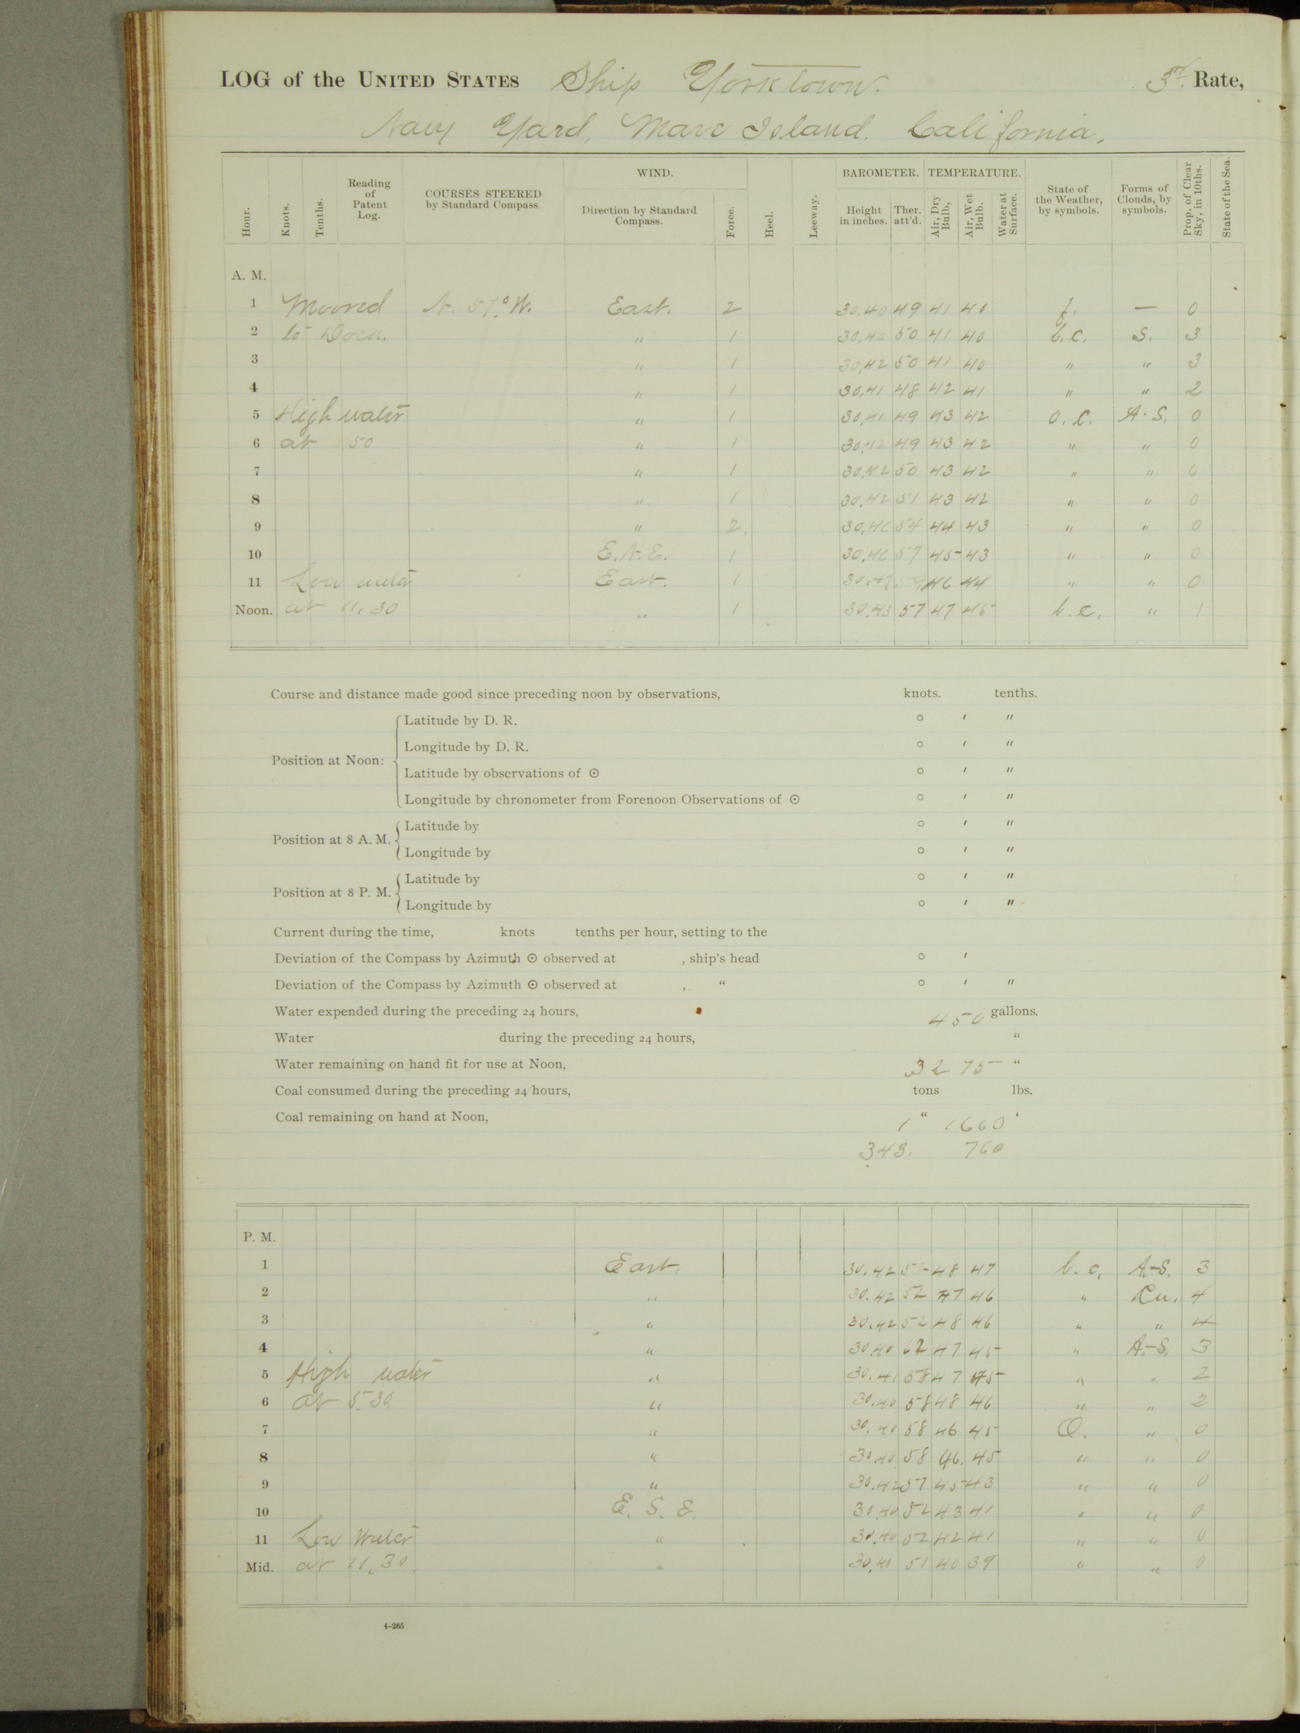 LOG of the UNITED STATES Ship Yorktown. 3rd Rate,
Navy Yard, Mare Island. California.
Hour. Knots. Tenths. Reading of Patent Log. COURSES STEERED by Standard Compass. WIND. Direction by Standard Compass. Force. Heel. Leeway. BAROMETER. Height in inches. Ther. att'd. TEMPERATURE. Air, Dry Bulb, Air, Wet Bulb. Water at Surface. State of the Weather, by symbols. Forms of Clouds, by symbols. Prop. of Clear Sky, in 10ths. State of the Sea.
A. M.
1 Moored N. 57° W. East. 2 30,40 49 41 40 f. — 0
2 to Dock. " 1 30,40 50 41 40 b.c. S. 3
3 " 1 30,42 50 41 40 " " 3
4 " 1 30,41 48 42 41 " " 2
5 High water " 1 30,41 49 43 42 o.c. A-S. 0
6 at 50 " 1 30,42 49 43 42 " " 0
7 " 1 30,42 50 43 42 " " 0
8 " 1 30,42 51 43 42 " " 0
9 " 2. 30,46 54 44 43 " " 0
10 E.N.E. 1 30,46 57 45 43 " " 0
11 Low water East. 1 30,47 59 46 44 " " 0
Noon. at 11,30 " 1 30,43 57 47 45 b.c. " 1
Course and distance made good since preceding noon by observations, knots. tenths.
Position at Noon: Latitude by D. R. ° ′ ″
Longitude by D. R. ° ′ ″
Latitude by observations of ☉ ° ′ ″
Longitude by chronometer from Forenoon Observations of ☉ ° ′ ″
Position at 8 A. M. Latitude by ° ′ ″
Longitude by ° ′ ″
Position at 8 P. M. Latitude by ° ′ ″
Longitude by ° ′ ″
Current during the time, knots tenths per hour, setting to the
Deviation of the Compass by Azimuth ☉ observed at , ship's head ° ′
Deviation of the Compass by Azimuth ☉ observed at , " ° ′ ″
Water expended during the preceding 24 hours, 450 gallons.
Water during the preceding 24 hours, "
Water remaining on hand fit for use at Noon, 3275 "
Coal consumed during the preceding 24 hours, tons lbs.
Coal remaining on hand at Noon, 1 " 1660 '
343. 760
P. M.
1 East. 30.42 52 48 47 b.c. A.-S. 3
2 " 30.42 52 47 46 " Cu. 4
3 " 30.42 52 48 46 " " 4
4 " 30.40 62 47 45 " A.-S. 3
5 High water " 30.41 58 47 45 " " 2
6 at 5.30 " 30.40 58 48 46 " " 2
7 " 30.40 58 46 45 O. " 0
8 " 30.40 58 46. 45 " " 0
9 " 30.42 57 45 43 " " 0
10 E. S. E. 30.40 52 43 41 " " 0
11 Low Water " 30.40 52 42 41 " " 0
Mid. at 11,30. " 30.41 51 40 39 " " 0
4-265